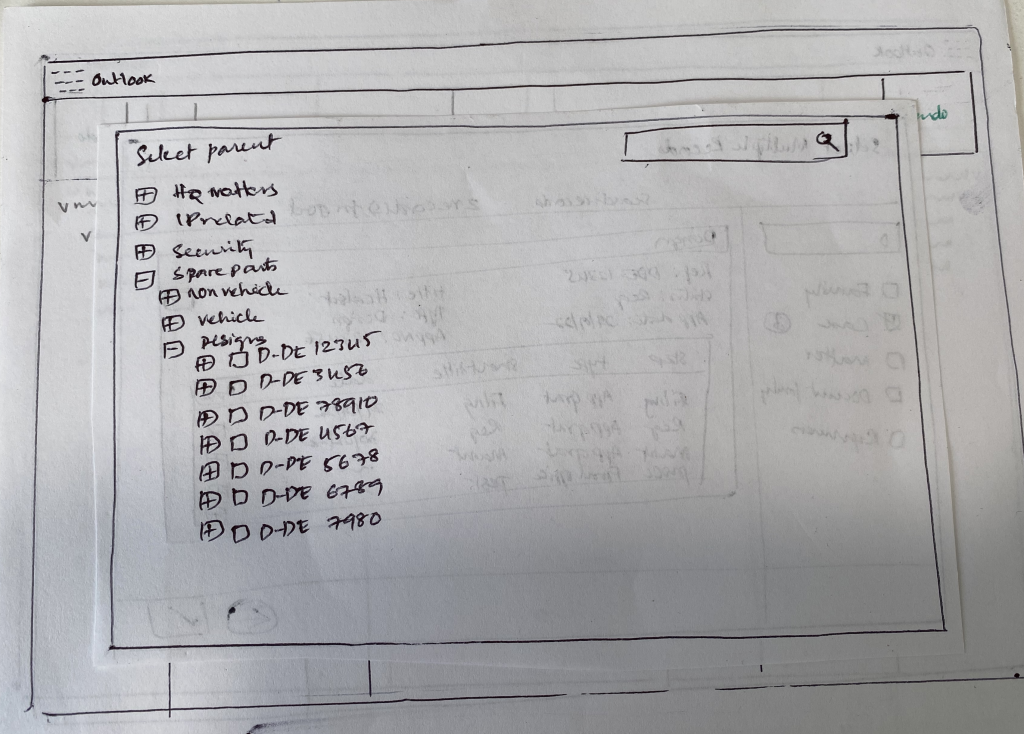 Outlook
ndo
Select parent
HQ matters
IP related
Security
Spare parts
non vehicle
vehicle
Designs
D-DE 12345
D-DE 3456
D-DE 78910
D-DE 4567
D-DE 5678
D-DE 6789
D-DE 7980